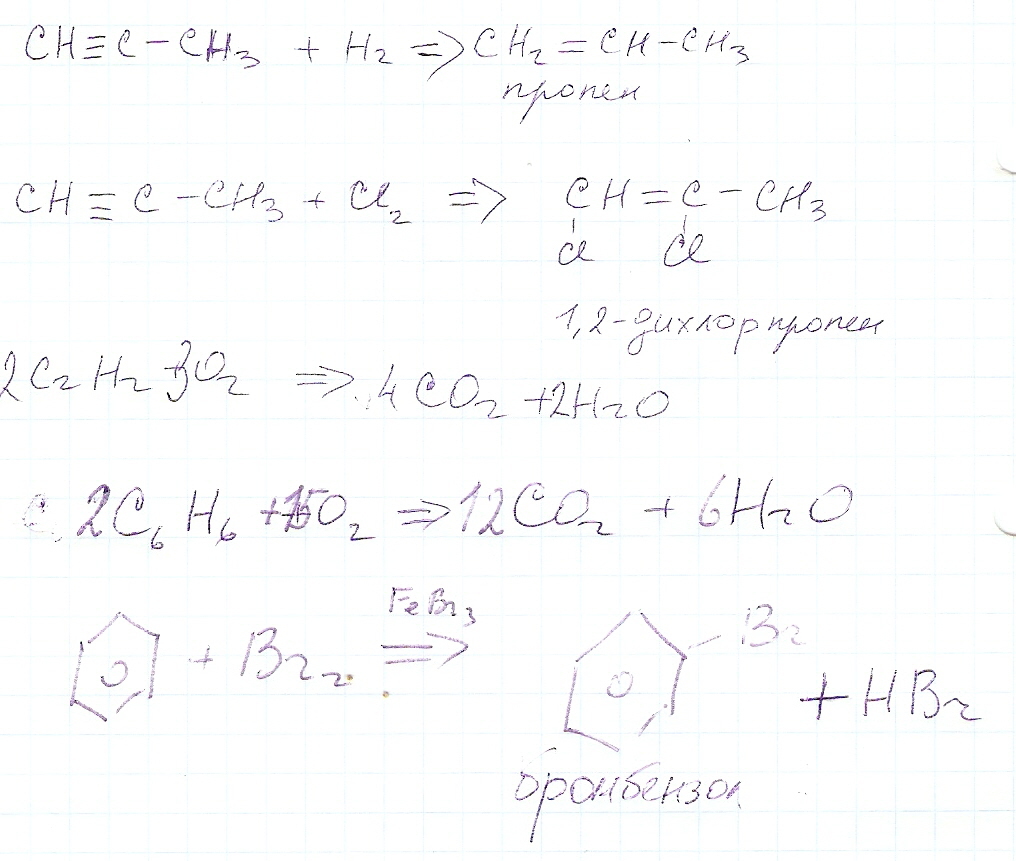 CH≡C-CH₃ + H₂ ⇒ CH₂=CH-CH₃
пропен
CH≡C-CH₃ + Cl₂ ⇒ CH=C-CH₃
Cl Cl
1,2-дихлорпропен
2C₂H₂ + 3O₂ ⇒ 4CO₂ + 2H₂O
2C₆H₆ + 15O₂ ⇒ 12CO₂ + 6H₂O
FeBr₃
+ Br₂ ⇒ Br + HBr
бромбензол